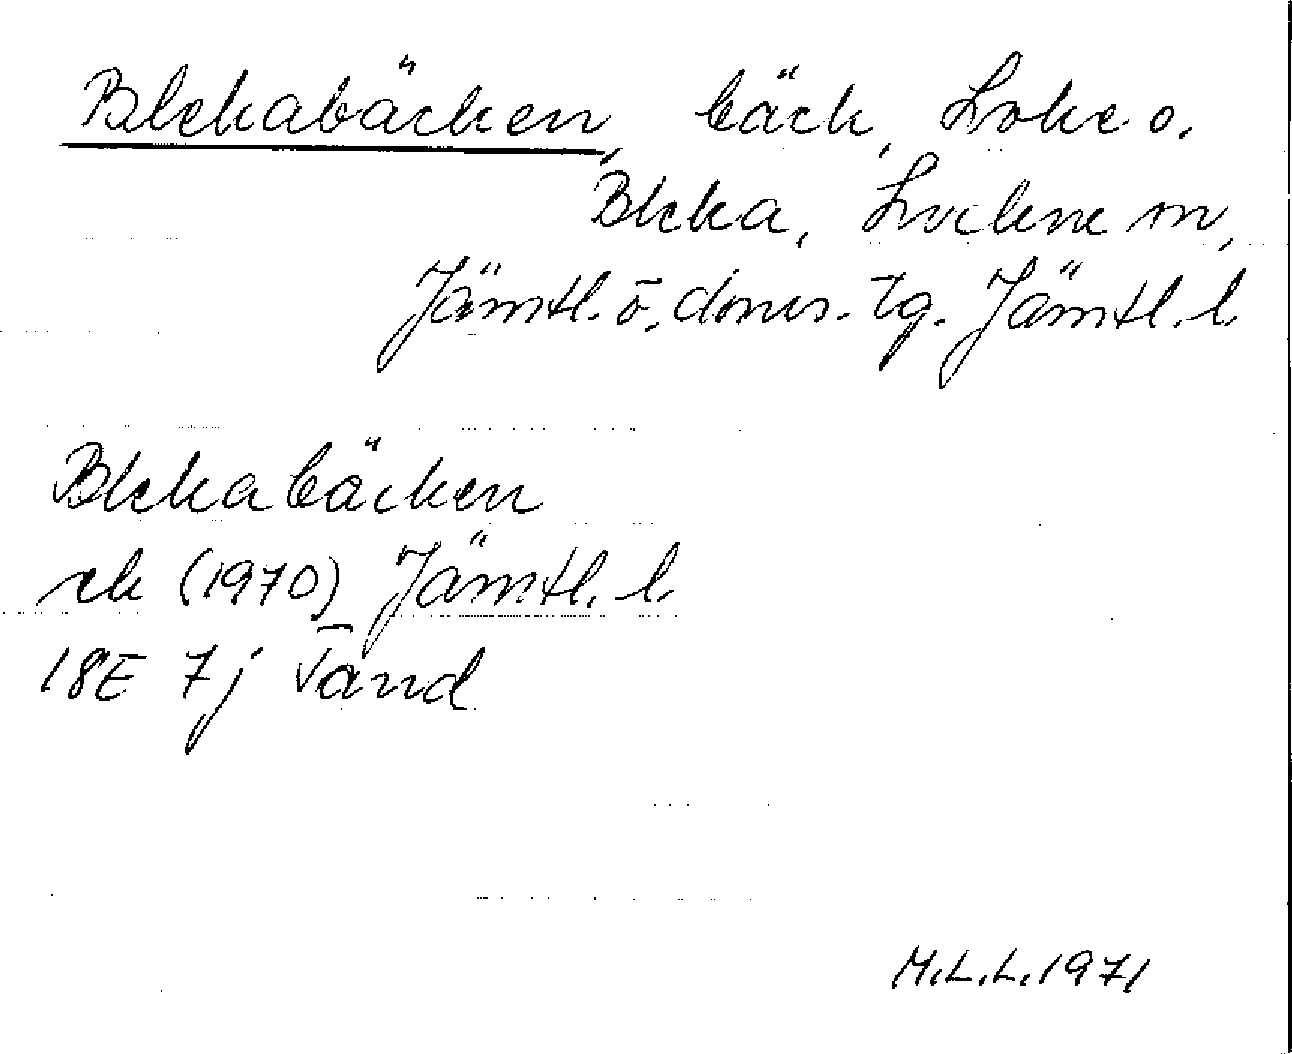 Bleckabäcken, bäck, Locke o.
Blecka, Lockne sn,
Jämtl. ö. doms. tg. Jämtl. l.
Bleckabäcken
ek (1970) Jämtl. l.
18E 7j Tand
M.L.L. 1971